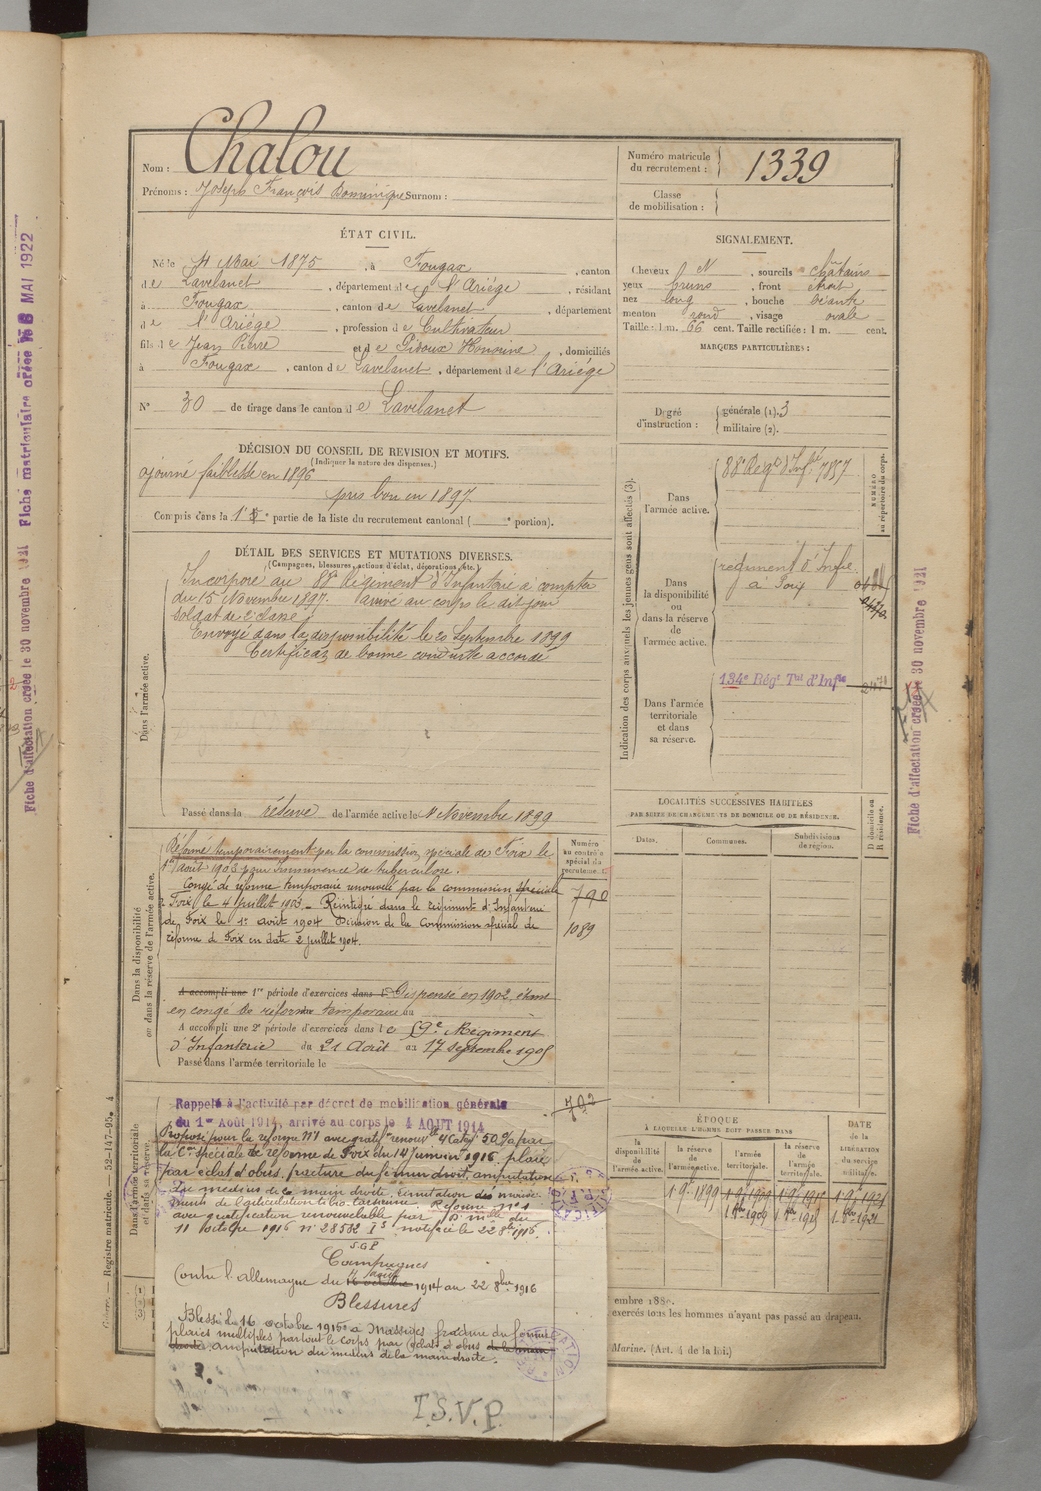 Fiche matriculaire créée le 8 MAI 1922
Fiche d'affectation créée le 30 novembre 1921
Nom : Chalou
Prénoms : Joseph François Dominique Surnom :
Numéro matricule du recrutement : 1339
Classe de mobilisation :
ÉTAT CIVIL.
Né le 4 Mai 1875, à Fougax, canton
de Lavelanet, département de l'Ariége, résidant
à Fougax, canton de Lavelanet, département
de l'Ariége, profession de Cultivateur
fils de Jean Pierre et de Pidoux Honorine, domiciliés
à Fougax, canton de Lavelanet, département de l'Ariége
N° 30 de tirage dans le canton de Lavelanet
SIGNALEMENT.
Cheveux N, sourcils châtains
yeux bruns, front étroit
nez long, bouche béante
menton rond, visage ovale
Taille : 1 m. 66 cent. Taille rectifiée : 1 m. cent.
MARQUES PARTICULIÈRES :
Degré d'instruction : générale (1). 3
militaire (2).
DÉCISION DU CONSEIL DE REVISION ET MOTIFS.
(Indiquer la nature des dispenses.)
ajourné faiblesse en 1896
pris bon en 1897
Compris dans la 1re partie de la liste du recrutement cantonal ( e portion).
DÉTAIL DES SERVICES ET MUTATIONS DIVERSES.
(Campagnes, blessures, actions d'éclat, décorations, etc.)
Dans l'armée active.
Incorporé au 88e Régiment d'Infanterie à compter
du 15 Novembre 1897. arrivé au corps le dit jour
soldat de 2e classe
Envoyé dans la disponibilité le 20 Septembre 1899
Certificat de bonne conduite accordé
Passé dans la réserve de l'armée active le 1 Novembre 1899
Indication des corps auxquels les jeunes gens sont affectés (3).
NUMÉRO au répertoire du corps.
Dans l'armée active.
88e Régt d'Inf. 7857
Dans la disponibilité ou dans la réserve de l'armée active.
régiment d'Infie
à Foix
Dans l'armée territoriale et dans sa réserve.
134e Régt Tal d'Infie
LOCALITÉS SUCCESSIVES HABITÉES
PAR SUITE DE CHANGEMENTS DE DOMICILE OU DE RÉSIDENCE.
Dates.
Communes.
Subdivisions de région.
D domicile ou R résidence.
Fiche d'affectation créée le 30 novembre 1921
Dans la disponibilité ou dans la réserve de l'armée active.
Numéro au contrôle spécial du recrutement
Réformé temporairement par la commission spéciale de Foix le
1er Août 1903 pour Imminence de tuberculose.
Congé de réforme temporaire renouvelé par la commission spéciale
de Foix, le 4 Juillet 1903. Réintégré dans le régiment d'Infanterie
de Foix le 1er août 1904 Décision de la Commission spéciale de
réforme de Foix en date 2 juillet 1904.
790
1089
A accompli une 1re période d'exercices dans le Dispensé en 1902, étant
en congé de réforme temporaire au
A accompli une 2e période d'exercices dans le 59e Régiment
d'Infanterie du 21 Août au 17 Septembre 1905
Passé dans l'armée territoriale le
Dans l'armée territoriale et dans sa réserve.
Rappelé à l'activité par décret de mobilisation générale
du 1er Août 1914, arrivé au corps le 4 AOUT 1914
792
Proposé pour la réforme N°1 avec gratifon renouvle 4e Catég. 50% par
la Con spéciale de réforme de Foix du 14 Janvier 1916. plaie
par éclat d'obus, fracture du fémur droit, amputation
du médius de la main droite, limitation des mouve-
ments de l'articulation tibio-tarsienne. Réformé N°1
avec gratification renouvelable par Don mlle du
11 octobre 1916 n° 28532 I S notifiée le 22 8bre 1916.
S.G.P
Campagnes
Contre l'allemagne du 16 octobre 4 août 1914 au 22 8bre 1916
Blessures
Blessé le 16 octobre 1915 à Massiges fracture du fémur
plaies multiples partout le corps par éclats d'obus de la main
droite, amputation du médius de la main droite.
T.S.V.P.
ÉPOQUE
À LAQUELLE L'HOMME DOIT PASSER DANS
la disponibilité de l'armée active.
la réserve de l'armée active.
l'armée territoriale.
la réserve de l'armée territoriale.
DATE de la LIBÉRATION du service militaire.
1 9bre 1899
embre 188
exercés tous les hommes n'ayant pas passé au drapeau.
Marine. (Art. 4 de la loi.)
Registre matricule. — 52-147-95. 4